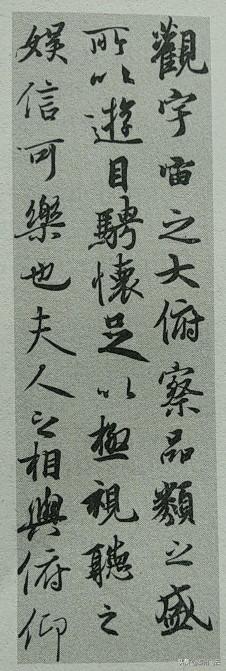 觀宇宙之大俯察品類之盛
所以遊目騁懷足以極視聽之
娛信可樂也夫人之相與俯仰